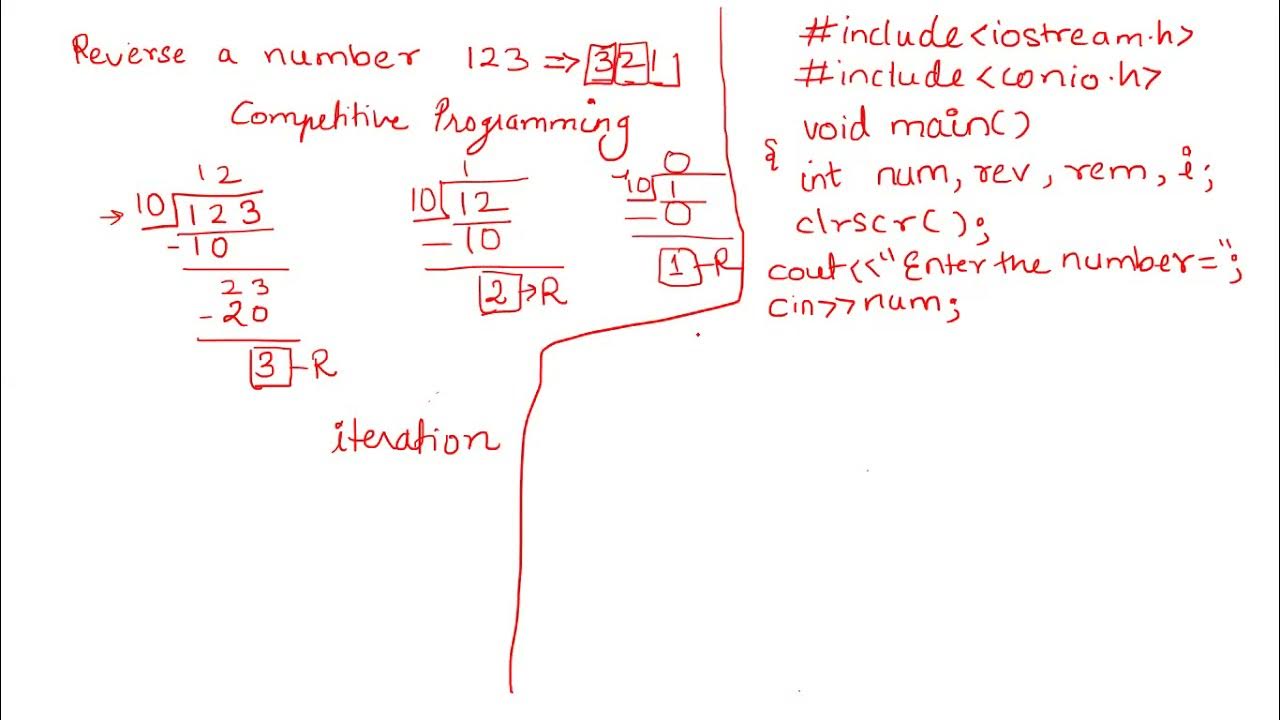 Reverse a number 123 => 321
Competitive Programming
12
10 123
-10
23
-20
3-R
1
10 12
-10
2→R
0
10 1
-0
1-R
iteration
#include<iostream.h>
#include<conio.h>
void main()
{
int num, rev, rem, i;
clrscr();
cout<<"Enter the number=";
cin>>num;